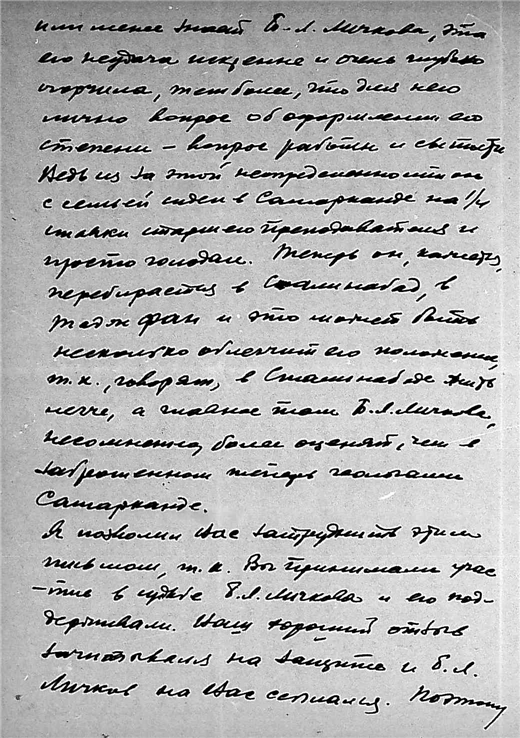 или менее знает Б.Л. Личкова, эта
его неудача искренне и очень глубоко
огорчила, тем более, что для него
лично вопрос об оформлении его
степени – вопрос работы и сытости
Ведь из за этой неопределенности он
с семьей сидел в Самарканде на 1/4
ставки старшего преподавателя и
просто голодал. Теперь он, кажется,
перебирается в Сталинабад, в
Таджфан и это может быть
несколько облегчит его положение,
т.к., говорят, в Сталинабаде жить
легче, а главное там Б.Л. Личкова,
несомненно, более оценят, чем в
заброшенном теперь геологами
Самарканде.
Я позволил Вас затруднить этим
письмом, т.к. Вы принимали учас-
-тие в судьбе Б.Л. Личкова и его под-
держивали. Ваш хороший отзыв
зачитывался на защите и Б.Л.
Личков на Вас сослался. Поэтому